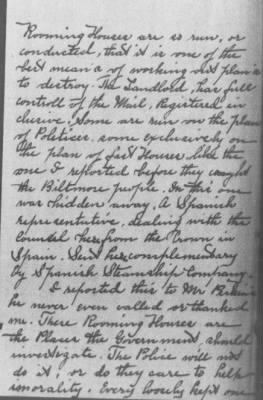 Rooming Houses are so run, or
conducted, that it is one of the
best means of working out plans
to destroy. The Landlord, has full
controll of the Mail, Registered in
clusive. Some are run on the plan
of Politics. some exclusively on
the plan of fast Houses, like the
one I reported before they caught
the Biltmore people. In this one
was hidden away. A Spanish
representative, dealing with the
Councel here from the Crown in
Spain. Sent here complementary
by Spanish Steamship Company.
I reported this to Mr.
he never even called or thanked
me. These Rooming Houses are
the Places the Government should
investigate. The Police will not
do it, or do they care to help
imorality. Every loosely kept one